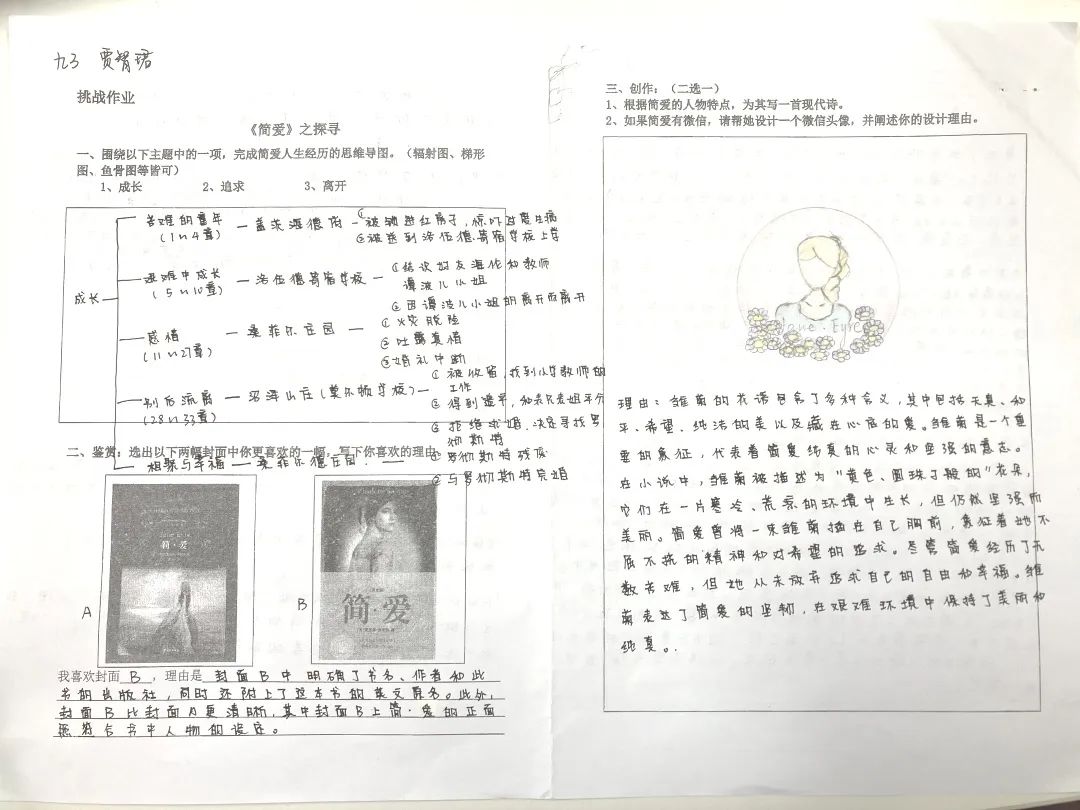 九3 贾智珺
挑战作业
《简爱》之探寻
一、围绕以下主题中的一项，完成简爱人生经历的思维导图。（辐射图、梯形
图、鱼骨图等皆可）
1、成长 2、追求 3、离开
成长
苦难的童年
(1~4章)
盖茨海德府
①被锁进红房子，惊吓过度生病
②被送到洛伍德寄宿学校上学
艰难中成长
(5~10章)
洛伍德寄宿学校
①结识好友海伦和教师
谭波儿小姐
②因谭波儿小姐的离开而离开
感情
(11~27章)
桑菲尔庄园
①火灾脱险
②吐露真情
③婚礼中断
别后流离
(28~33章)
沼泽山庄(莫尔顿学校)
①被收留，找到小学教师的
工作
②得到遗产，和表兄表姐平分
③拒绝求婚，决定寻找罗
彻斯特
相聚与幸福
桑菲尔德庄园
①罗彻斯特残疾
②与罗彻斯特完婚
二、鉴赏：选出以下两幅封面中你更喜欢的一幅，写下你喜欢的理由
A
简·爱
B
简 爱
我喜欢封面 B ，理由是 封面B中明确了书名、作者和此
书的出版社，同时还附上了这本书的英文原名。此外，
封面B比封面A更清晰，其中封面B上简·爱的正面
照符合书中人物的设定。
三、创作：（二选一）
1、根据简爱的人物特点，为其写一首现代诗。
2、如果简爱有微信，请帮她设计一个微信头像，并阐述你的设计理由。
Jane·Eyre
理由：雏菊的花语包含了多种含义，其中包括天真、和
平、希望、纯洁的美以及藏在心底的爱。雏菊是一个重
要的象征，代表着简爱纯真的心灵和坚强的意志。
在小说中，雏菊被描述为"黄色、圆珠子般的"花朵，
它们在一片寒冷、荒凉的环境中生长，但仍然坚强而
美丽。简爱曾将一束雏菊插在自己胸前，象征着她不
屈不挠的精神和对希望的追求。尽管简爱经历了无
数苦难，但她从未放弃追求自己的自由和幸福。雏
菊表达了简爱的坚韧，在艰难环境中保持了美丽和
纯真。